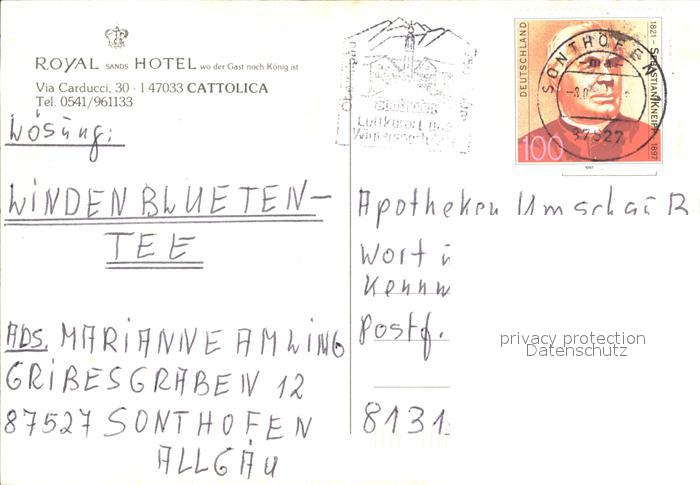 ROYAL SANDS HOTEL wo der Gast noch König ist
Via Carducci, 30 - I 47033 CATTOLICA
Tel. 0541/961133
Lösung:
WINDENBLUETEN-
TEE
ADS. MARIANNE AMLING
GRIBESGRABEN 12
87527 SONTHOFEN
ALLGÄU
Luftkurort und
Wintersport
DEUTSCHLAND
1821 - SEBASTIAN KNEIPP - 1897
100
1997
SONTHOFEN 1
ma
87527
Apotheken Umschau B
Wort
Kennw
Postf.
8131
privacy protection
Datenschutz